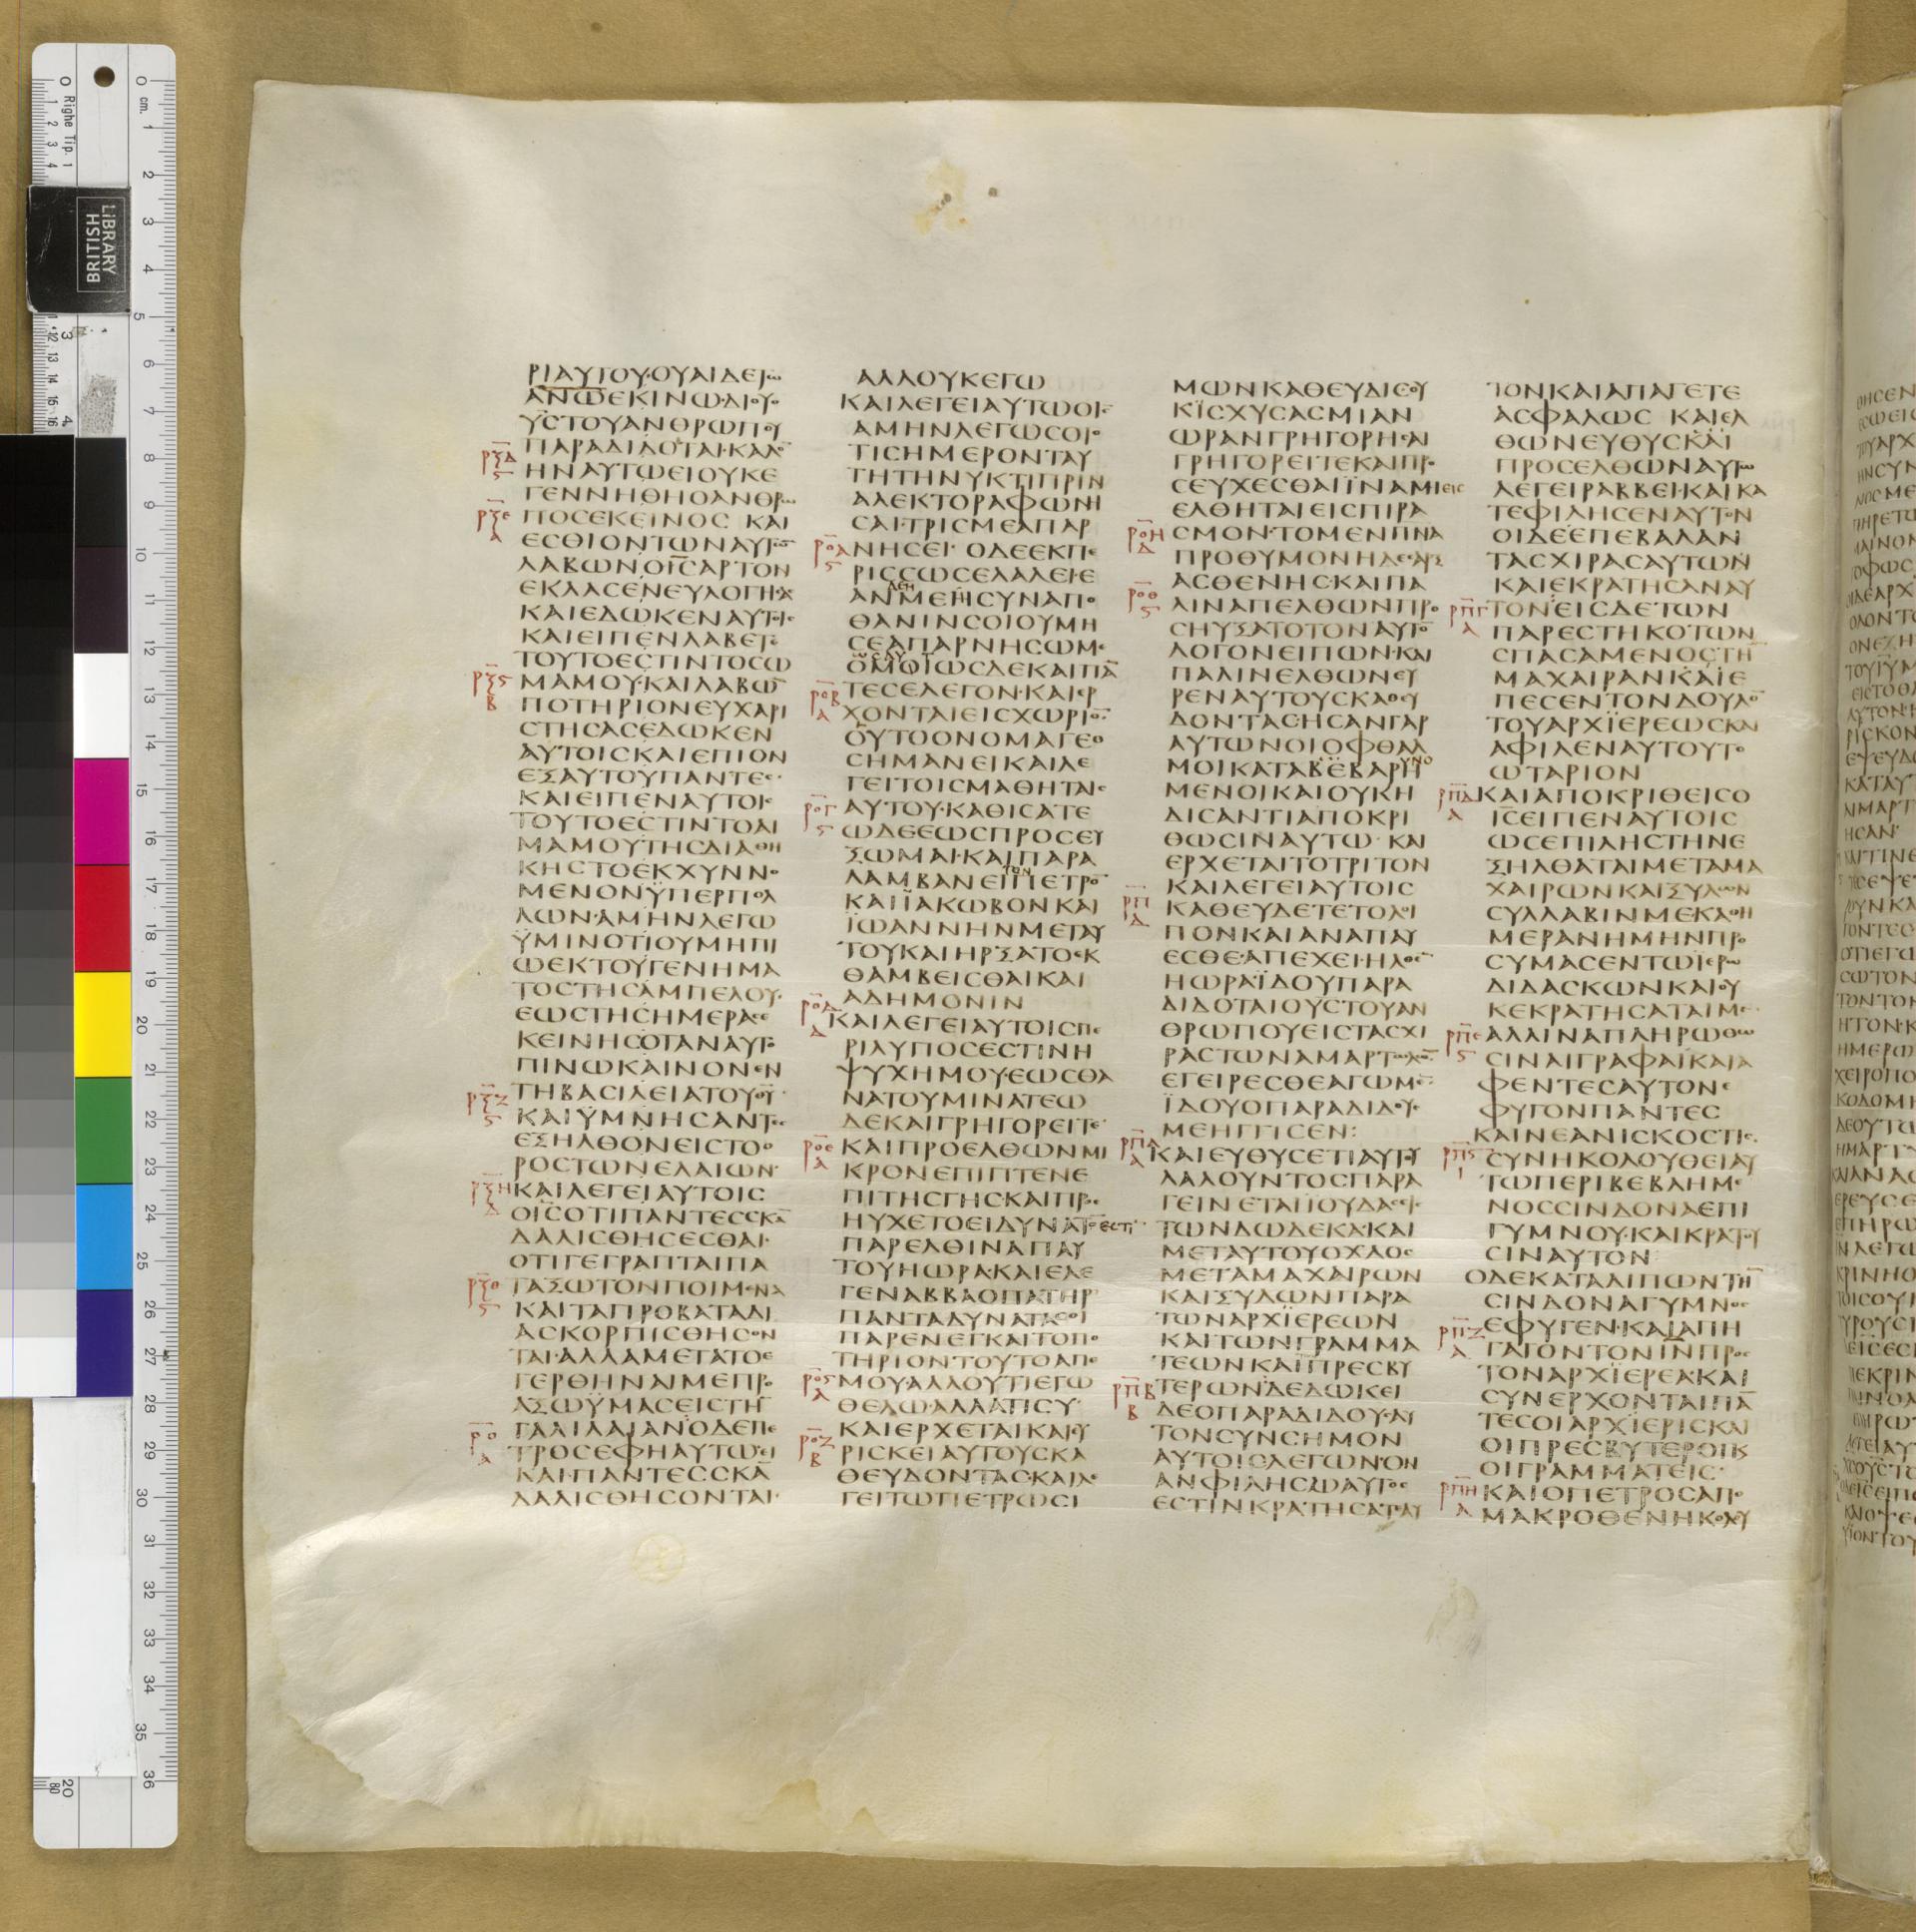 ΡΙΑΥΤΟΥ·ΟΥΑΙΔΕΤΩ
ΑΝΩΕΚΙΝΩ·ΔΙΟΥ·Ο
ΥΣΤΟΥΑΝΘΡΩΠΟΥ
ΠΑΡΑΔΙΔΟΤΑΙ·ΚΑΛΟ
ΗΝΑΥΤΩΕΙΟΥΚΕ
ΓΕΝΝΗΘΗΟΑΝΘΡΩ
ΠΟΣΕΚΕΙΝΟΣ ΚΑΙ
ΕΣΘΙΟΝΤΩΝΑΥΤΩ
ΛΑΒΩΝΟΙΣΑΡΤΟΝ
ΕΚΛΑΣΕΝΕΥΛΟΓΗΣΑ
ΚΑΙΕΔΩΚΕΝΑΥΤΟΙΣ
ΚΑΙΕΙΠΕΝΛΑΒΕΤΕ
ΤΟΥΤΟΕΣΤΙΝΤΟΣΩ
ΜΑΜΟΥ·ΚΑΙΛΑΒΩ
ΠΟΤΗΡΙΟΝΕΥΧΑΡΙ
ΣΤΗΣΑΣΕΔΩΚΕΝ
ΑΥΤΟΙΣΚΑΙΕΠΙΟΝ
ΕΞΑΥΤΟΥΠΑΝΤΕΣ·
ΚΑΙΕΙΠΕΝΑΥΤΟΙΣ
ΤΟΥΤΟΕΣΤΙΝΤΟΑΙ
ΜΑΜΟΥΤΗΣΔΙΑΘΗ
ΚΗΣΤΟΕΚΧΥΝΝΟ
ΜΕΝΟΝΫΠΕΡΠΟΛ
ΛΩΝ·ΑΜΗΝΛΕΓΩ
ΫΜΙΝΟΤΙΟΥΜΗΠΙ
ΩΕΚΤΟΥΓΕΝΗΜΑ
ΤΟΣΤΗΣΑΜΠΕΛΟΥ·
ΕΩΣΤΗΣΗΜΕΡΑΣΕ
ΚΕΙΝΗΣΟΤΑΝΑΥΤΟ
ΠΙΝΩΚΑΙΝΟΝΕΝ
ΤΗΒΑΣΙΛΕΙΑΤΟΥΘΥ·
ΚΑΙΫΜΝΗΣΑΝΤΕΣ
ΕΞΗΛΘΟΝΕΙΣΤΟΟ
ΡΟΣΤΩΝΕΛΑΙΩΝ·
ΚΑΙΛΕΓΕΙΑΥΤΟΙΣ
ΟΙΣΟΤΙΠΑΝΤΕΣΣΚΑ
ΔΑΛΙΣΘΗΣΕΣΘΑΙ·
ΟΤΙΓΕΓΡΑΠΤΑΙΠΑ
ΤΑΞΩΤΟΝΠΟΙΜΕΝΑ
ΚΑΙΤΑΠΡΟΒΑΤΑΔΙ
ΑΣΚΟΡΠΙΣΘΗΣΟΝ
ΤΑΙ·ΑΛΛΑΜΕΤΑΤΟΕ
ΓΕΡΘΗΝΑΙΜΕΠΡΟ
ΑΞΩΫΜΑΣΕΙΣΤΗ
ΓΑΛΙΛΑΙΑΝΟΔΕΠΕ
ΤΡΟΣΕΦΗΑΥΤΩΕΙ
ΚΑΙΠΑΝΤΕΣΣΚΑ
ΔΑΛΙΣΘΗΣΟΝΤΑΙ·
ΑΛΛΟΥΚΕΓΩ
ΚΑΙΛΕΓΕΙΑΥΤΩΟΙΣ
ΑΜΗΝΛΕΓΩΣΟΙΟ
ΤΙΣΗΜΕΡΟΝΤΑΥ
ΤΗΤΗΝΥΚΤΙΠΡΙΝ
ΑΛΕΚΤΟΡΑΦΩΝΗ
ΣΑΙ·ΤΡΙΣΜΕΑΠΑΡ
ΝΗΣΕΙ· ΟΔΕΕΚΠΕ
ΡΙΣΣΩΣΕΛΑΛΕΙ·Ε
ΑΝΜΕΗΣΥΝΑΠΟ
ΘΑΝΙΝΣΟΙΟΥΜΗ
ΣΕΑΠΑΡΝΗΣΩΜΑΙ
ΟΜΟΙΩΣΔΕΚΑΙΠΑ
ΤΕΣΕΛΕΓΟΝ·ΚΑΙΕΡ
ΧΟΝΤΑΙΕΙΣΧΩΡΙΟ
ΟΥΤΟΟΝΟΜΑΓΕΘ
ΣΗΜΑΝΕΙΚΑΙΛΕ
ΓΕΙΤΟΙΣΜΑΘΗΤΑΙΣ
ΑΥΤΟΥ·ΚΑΘΙΣΑΤΕ
ΩΔΕΕΩΣΠΡΟΣΕΥ
ΞΩΜΑΙ·ΚΑΙΠΑΡΑ
ΛΑΜΒΑΝΕΙΠΕΤΡΟ
ΚΑΙΪΑΚΩΒΟΝΚΑΙ
ΪΩΑΝΝΗΝΜΕΤΑΥ
ΤΟΥΚΑΙΗΡΞΑΤΟΕΚ
ΘΑΜΒΕΙΣΘΑΙΚΑΙ
ΑΔΗΜΟΝΙΝ
ΚΑΙΛΕΓΕΙΑΥΤΟΙΣΠΕ
ΡΙΛΥΠΟΣΕΣΤΙΝΗ
ΨΥΧΗΜΟΥ·ΕΩΣΘΑ
ΝΑΤΟΥΜΙΝΑΤΕΩ
ΔΕΚΑΙΓΡΗΓΟΡΕΙΤΕ
ΚΑΙΠΡΟΕΛΘΩΝΜΙ
ΚΡΟΝΕΠΙΠΤΕΝΕ
ΠΙΤΗΣΓΗΣΚΑΙΠΡΟΣ
ΗΥΧΕΤΟΕΙΔΥΝΑΤΟΕΣΤΙ
ΠΑΡΕΛΘΙΝΑΠΑΥ
ΤΟΥΗΩΡΑ·ΚΑΙΕΛΕ
ΓΕΝΑΒΒΑΟΠΑΤΗΡ
ΠΑΝΤΑΔΥΝΑΤΑΣΟΙ
ΠΑΡΕΝΕΓΚΑΙΤΟΠΟ
ΤΗΡΙΟΝΤΟΥΤΟΑΠΕ
ΜΟΥ·ΑΛΛΟΥΤΙΕΓΩ
ΘΕΛΩ·ΑΛΛΑΤΙΣΥ
ΚΑΙΕΡΧΕΤΑΙΚΑΙΕΥ
ΡΙΣΚΕΙΑΥΤΟΥΣΚΑ
ΘΕΥΔΟΝΤΑΣ·ΚΑΙΛΕ
ΓΕΙΤΩΠΕΤΡΩΣΙ
ΜΩΝΚΑΘΕΥΔΙΣΟΥ
ΚΪΣΧΥΣΑΣΜΙΑΝ
ΩΡΑΝΓΡΗΓΟΡΗΣΑΙ
ΓΡΗΓΟΡΕΙΤΕΚΑΙΠΡΟ
ΣΕΥΧΕΣΘΑΙΪΝΑΜΙΕΙΣ
ΕΛΘΗΤΑΙΕΙΣΠΙΡΑ
ΣΜΟΝ·ΤΟΜΕΝΠΝΑ
ΠΡΟΘΥΜΟΝΗΔΕΣΑΡΞ
ΑΣΘΕΝΗΣ·ΚΑΙΠΑ
ΛΙΝΑΠΕΛΘΩΝΠΡΟ
ΣΗΥΞΑΤΟΤΟΝΑΥΤΟ
ΛΟΓΟΝΕΙΠΩΝ·ΚΑΙ
ΠΑΛΙΝΕΛΘΩΝΕΥ
ΡΕΝΑΥΤΟΥΣΚΑΘΕΥ
ΔΟΝΤΑΣ·ΗΣΑΝΓΑΡ
ΑΥΤΩΝΟΙΟΦΘΑΛ
ΜΟΙΚΑΤΑΒΕΒΑΡΗ
ΜΕΝΟΙΚΑΙΟΥΚΗ
ΔΙΣΑΝΤΙΑΠΟΚΡΙ
ΘΩΣΙΝΑΥΤΩ· ΚΑΙ
ΕΡΧΕΤΑΙΤΟΤΡΙΤΟΝ
ΚΑΙΛΕΓΕΙΑΥΤΟΙΣ
ΚΑΘΕΥΔΕΤΕΤΟΛΟΙ
ΠΟΝΚΑΙΑΝΑΠΑΥ
ΕΣΘΕ·ΑΠΕΧΕΙ·ΗΛΘΕ
ΗΩΡΑΪΔΟΥΠΑΡΑ
ΔΙΔΟΤΑΙΟΥΣΤΟΥΑΝ
ΘΡΩΠΟΥΕΙΣΤΑΣΧΙ
ΡΑΣΤΩΝΑΜΑΡΤΩΛΩ
ΕΓΕΙΡΕΣΘΕΑΓΩΜΕ
ΪΔΟΥΟΠΑΡΑΔΙΔΟΥΣ
ΜΕΗΓΓΙΣΕΝ:
ΚΑΙΕΥΘΥΣΕΤΙΑΥΤΟΥ
ΛΑΛΟΥΝΤΟΣΠΑΡΑ
ΓΕΙΝΕΤΑΙΪΟΥΔΑΣΕΙΣ
ΤΩΝΔΩΔΕΚΑ·ΚΑΙ
ΜΕΤΑΥΤΟΥΟΧΛΟΣ
ΜΕΤΑΜΑΧΑΙΡΩΝ
ΚΑΙΞΥΛΩΝΠΑΡΑ
ΤΩΝΑΡΧΪΕΡΕΩΝ
ΚΑΙΤΩΝΓΡΑΜΜΑ
ΤΕΩΝΚΑΙΠΡΕΣΒΥ
ΤΕΡΩΝΔΕΔΩΚΕΙ
ΔΕΟΠΑΡΑΔΙΔΟΥΣΑΥ
ΤΟΝΣΥΝΣΗΜΟΝ
ΑΥΤΟΙΣΛΕΓΩΝΟΝ
ΑΝΦΙΛΗΣΩΑΥΤΟΣ
ΕΣΤΙΝΚΡΑΤΗΣΑΤΑΙΑΥ
ΤΟΝΚΑΙΑΠΑΓΕΤΕ
ΑΣΦΑΛΩΣ ΚΑΙΕΛ
ΘΩΝΕΥΘΥΣΚΑΙ
ΠΡΟΣΕΛΘΩΝΑΥΤΩ
ΛΕΓΕΙΡΑΒΒΕΙ·ΚΑΙΚΑ
ΤΕΦΙΛΗΣΕΝΑΥΤΟΝ
ΟΙΔΕΕΠΕΒΑΛΑΝ
ΤΑΣΧΙΡΑΣΑΥΤΩΝ
ΚΑΙΕΚΡΑΤΗΣΑΝΑΥ
ΤΟΝΕΙΣΔΕΤΩΝ
ΠΑΡΕΣΤΗΚΟΤΩΝ
ΣΠΑΣΑΜΕΝΟΣΤΗ
ΜΑΧΑΙΡΑΝΚΑΙΕ
ΠΕΣΕΝΤΟΝΔΟΥΛΟ
ΤΟΥΑΡΧΪΕΡΕΩΣΚΑΙ
ΑΦΙΛΕΝΑΥΤΟΥΤΟ
ΩΤΑΡΙΟΝ
ΚΑΙΑΠΟΚΡΙΘΕΙΣΟ
ΙΣΕΙΠΕΝΑΥΤΟΙΣ
ΩΣΕΠΙΛΗΣΤΗΝΕ
ΞΗΛΘΑΤΑΙΜΕΤΑΜΑ
ΧΑΙΡΩΝΚΑΙΞΥΛΩΝ
ΣΥΛΛΑΒΙΝΜΕΚΑΘΗ
ΜΕΡΑΝΗΜΗΝΠΡΟ
ΣΥΜΑΣΕΝΤΩΪΕΡΩ
ΔΙΔΑΣΚΩΝΚΑΙΟΥ
ΚΕΚΡΑΤΗΣΑΤΑΙΜΕ
ΑΛΛΙΝΑΠΛΗΡΩΘΩ
ΣΙΝΑΙΓΡΑΦΑΙΚΑΙΑ
ΦΕΝΤΕΣΑΥΤΟΝΕ
ΦΥΓΟΝΠΑΝΤΕΣ
ΚΑΙΝΕΑΝΙΣΚΟΣΤΙΣ
ΣΥΝΗΚΟΛΟΥΘΕΙΑΥ
ΤΩΠΕΡΙΒΕΒΛΗΜΕ
ΝΟΣΣΙΝΔΟΝΑΕΠΙ
ΓΥΜΝΟΥ·ΚΑΙΚΡΑΤΟΥ
ΣΙΝΑΥΤΟΝ
ΟΔΕΚΑΤΑΛΙΠΩΝΤΗ
ΣΙΝΔΟΝΑΓΥΜΝΟΣ
ΕΦΥΓΕΝ·ΚΑΙΑΠΗ
ΓΑΓΟΝΤΟΝΙΝΠΡΟΣ
ΤΟΝΑΡΧΪΕΡΕΑ·ΚΑΙ
ΣΥΝΕΡΧΟΝΤΑΙΠΑ
ΤΕΣΟΙΑΡΧΪΕΡΙΣΚΑΙ
ΟΙΠΡΕΣΒΥΤΕΡΟΙΚ
ΟΙΓΡΑΜΜΑΤΕΙΣ·
ΚΑΙΟΠΕΤΡΟΣΑΠΟ
ΜΑΚΡΟΘΕΝΗΚΟΛΟΥ
BRITISH
LIBRARY